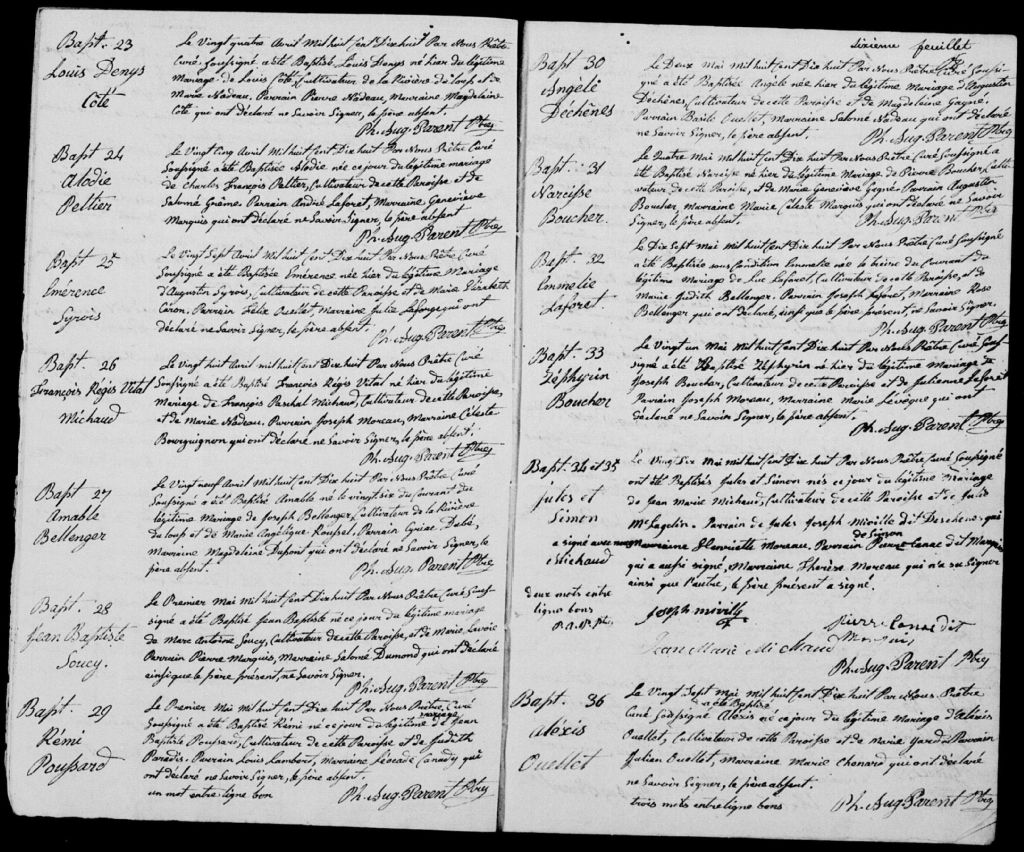 Bapt. 23
Louis Denys
Côté
Le Vingt quatre Avril Mil huit Cent Dixhuit Par Nous Prêtre
Curé Soussigné a été Baptisé Louis Denys né hier du légitime
Mariage de Louis Côté Cultivateur de la Rivière du loup et de
Marie Nadeau. Parrain Pierre Nadeau, Marraine Magdelaine
Côté qui ont déclaré ne Savoir Signer, le père absent.
Ph. Aug. Parent Ptre
Bapt 24
Alodie
Peltier
Le Vingt Cinq Avril Mil huit Cent Dixhuit Par Nous Prêtre Curé
Soussigné a été Baptisée Alodie née ce jour du légitime mariage
de Charles François Peltier, Cultivateur de cette Paroisse et de
Salomé Grâme. Parrain André Laforêt, Marraine Geneviève
Marquis qui ont déclaré ne Savoir Signer, le père absent
Ph. Aug. Parent Ptre
Bapt 25
Emérence
Syrois
Le Vingt Sept Avril Mil huit Cent Dix huit Par Nous Prêtre Curé
Soussigné a été Baptisée Emérence née hier du légitime Mariage
d'Augustin Syrois, Cultivateur de cette Paroisse et de Marie Elizabeth
Caron. Parrain Felix Ouelet, Marraine Julie Laforge qui ont
déclaré ne Savoir Signer, le père absent.
Ph. Aug. Parent Ptre
Bapt. 26
François Régis Vital
Michaud
Le Vingt huit Avril mil huit Cent Dixhuit Par Nous Prêtre Curé
Soussigné a été Baptisé François Régis Vital né hier du légitime
Mariage de François Paschal Michaud, Cultivateur de cette Paroisse,
et de Marie Nadeau. Parrain Joseph Moreau, Marraine Céleste
Bourguignon qui ont déclaré ne Savoir Signer, le père absent.
Ph. Aug. Parent Ptre
Bapt 27
Amable
Bellenger
Le Vingt neuf Avril Mil huit Cent Dixhuit Par Nous Prêtre Curé
Soussigné a été Baptisé Amable né le vingt six du Courant du
légitime Mariage de Joseph Bellenger Cultivateur de la Rivière
du loup et de Marie Angélique Roussel. Parrain Cyriac Dubé,
Marraine Magdeleine Dupont qui ont déclaré ne Savoir Signer, le
père absent.
Ph. Aug. Parent Ptre
Bapt. 28
Jean Baptiste
Soucy.
Le Premier Mai Mil huit Cent Dixhuit Par Nous Prêtre Curé Sous-
signé a été Baptisé Jean Baptiste né ce jour du légitime mariage
de Marc Antoine Soucy, Cultivateur de cette Paroisse, et de Marie Lavoie
Parrain Pierre Marquis, Marraine Salomé Dumond qui ont déclaré
ainsi que le père présent, ne Savoir Signer.
Ph. Aug. Parent Ptre
Bapt. 29
Rémi
Poussard
Le Premier Mai Mil huit Cent Dixhuit Par Nous Prêtre Curé
Soussigné a été Baptisé Rémi né ce jour du légitime mariage de Jean
Baptiste Poussard, Cultivateur de cette Paroisse et de Judith
Paradis. Parrain Louis Lambert, Marraine Léocade Canady qui
ont déclaré ne Savoir Signer, le père absent.
un mot entre ligne bon
Ph. Aug. Parent Ptre
Sixième feuillet
Bapt 30
Angèle
Déchènes
Le Deux Mai Mil huit Cent Dixhuit Par Nous Prêtre Curé Soussi-
gné a été Baptisée Angèle née hier du légitime Mariage d'Augustin
Déchènes, Cultivateur de cette Paroisse et de Magdelaine Gagné.
Parrain Basile Ouellet, Marraine Salomé Nadeau qui ont déclaré
ne Savoir Signer, le père absent.
Ph. Aug. Parent Ptre
Bapt. 31
Narcisse
Boucher.
Le Quatre Mai Mil huit Cent Dix huit Par Nous Prêtre Curé Soussigné a
été Baptisé Narcisse né hier du légitime Mariage de Pierre Boucher, Culti-
vateur de cette Paroisse, et de Marie Geneviève Gagné. Parrain Augustin
Boucher, Marraine Marie Céleste Marquis qui ont déclaré ne Savoir
Signer, le père absent.
Ph. Aug. Parent Ptre
Bapt. 32
Emmelie
Laforet
Le Dix Sept Mai Mil huit Cent Dix huit Par Nous Prêtre Curé Soussigné
a été Baptisée sous Condition Emmelie née le treize du Courant du
légitime Mariage de Luc Laforet, Cultivateur de cette Paroisse, et de
Marie Judith Bellenger. Parrain Joseph Laforet, Marraine Rose
Bellenger qui ont déclaré, ainsi que le père présent, ne Savoir Signer.
Ph. Aug. Parent Ptre
Bapt. 33
Zéphyrin
Boucher
Le Vingt un Mai Mil huit Cent Dix huit Par Nous Prêtre Curé Sous-
signé a été Baptisé Zéphyrin né hier du légitime Mariage de
Joseph Boucher, Cultivateur de cette Paroisse et de Julienne Laforet
Parrain Joseph Moreau, Marraine Marie Lévêque qui ont
déclaré ne Savoir Signer, le père absent.
Ph. Aug. Parent Ptre
Bapt. 34 et 35
Jules et
Simon
Michaud
Le Vingt Six Mai Mil huit Cent Dix huit Par Nous Prêtre Curé Soussigné
ont été Baptisés Jules et Simon nés ce jour du légitime Mariage
de Jean Marie Michaud, Cultivateur de cette Paroisse et de Julie
Mclaglin. Parrain de Jules Joseph Miville dit Deschenes qui
de Simon
a signé avec nous Marraine Henriette Moreau, Parrain Pierre Canac dit Marquis
qui a aussi signé, Marraine Thérèse Moreau qui n'a su Signer
ainsi que l'autre, le père présent a signé.
deux mots entre
ligne bons
P. A. P. Ptr.
Joseph mivill
Pierre Canac dit
Marquis
Jean Marie Michaud
Ph. Aug. Parent Ptre
Bapt. 36
Aléxis
Ouellet
Le Vingt Sept Mai Mil huit Cent Dix huit Par Nous Prêtre
a été Baptisé
Curé Soussigné Aléxis né ce jour du légitime Mariage d'Aléxis
Ouellet, Cultivateur de cette Paroisse et de Marie Gard. Parrain
Julien Ouellet, Marraine Marie Chenard qui ont déclaré
ne Savoir Signer, le père absent.
trois mots entre ligne bons
Ph. Aug. Parent Ptre